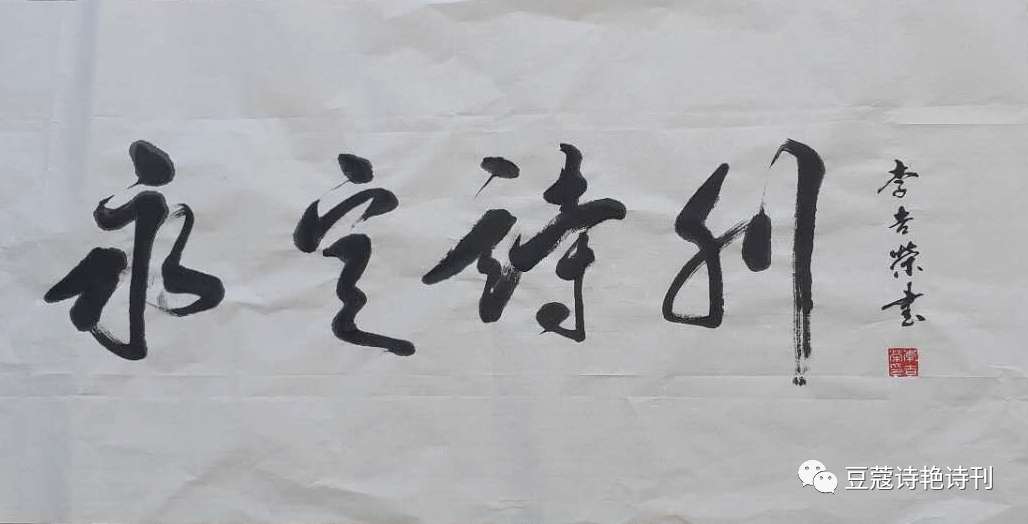 永定诗刊
李吉荣书
豆蔻诗艳诗刊